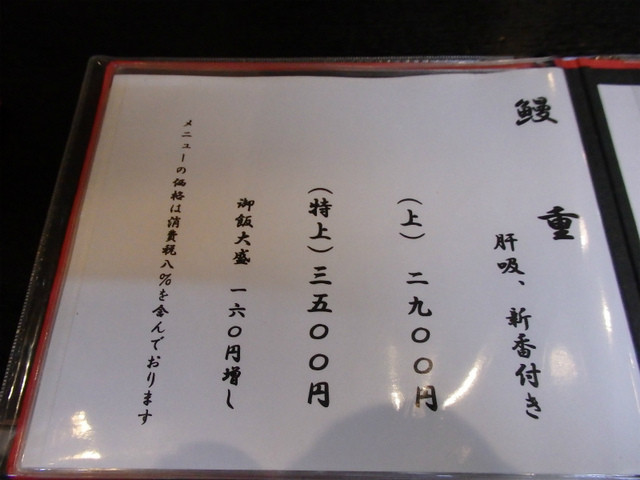 鰻重
肝吸、新香付き
(上) 二九〇〇円
(特上) 三五〇〇円
御飯大盛 一六〇円増し
メニューの価格は消費税八%を含んでおります